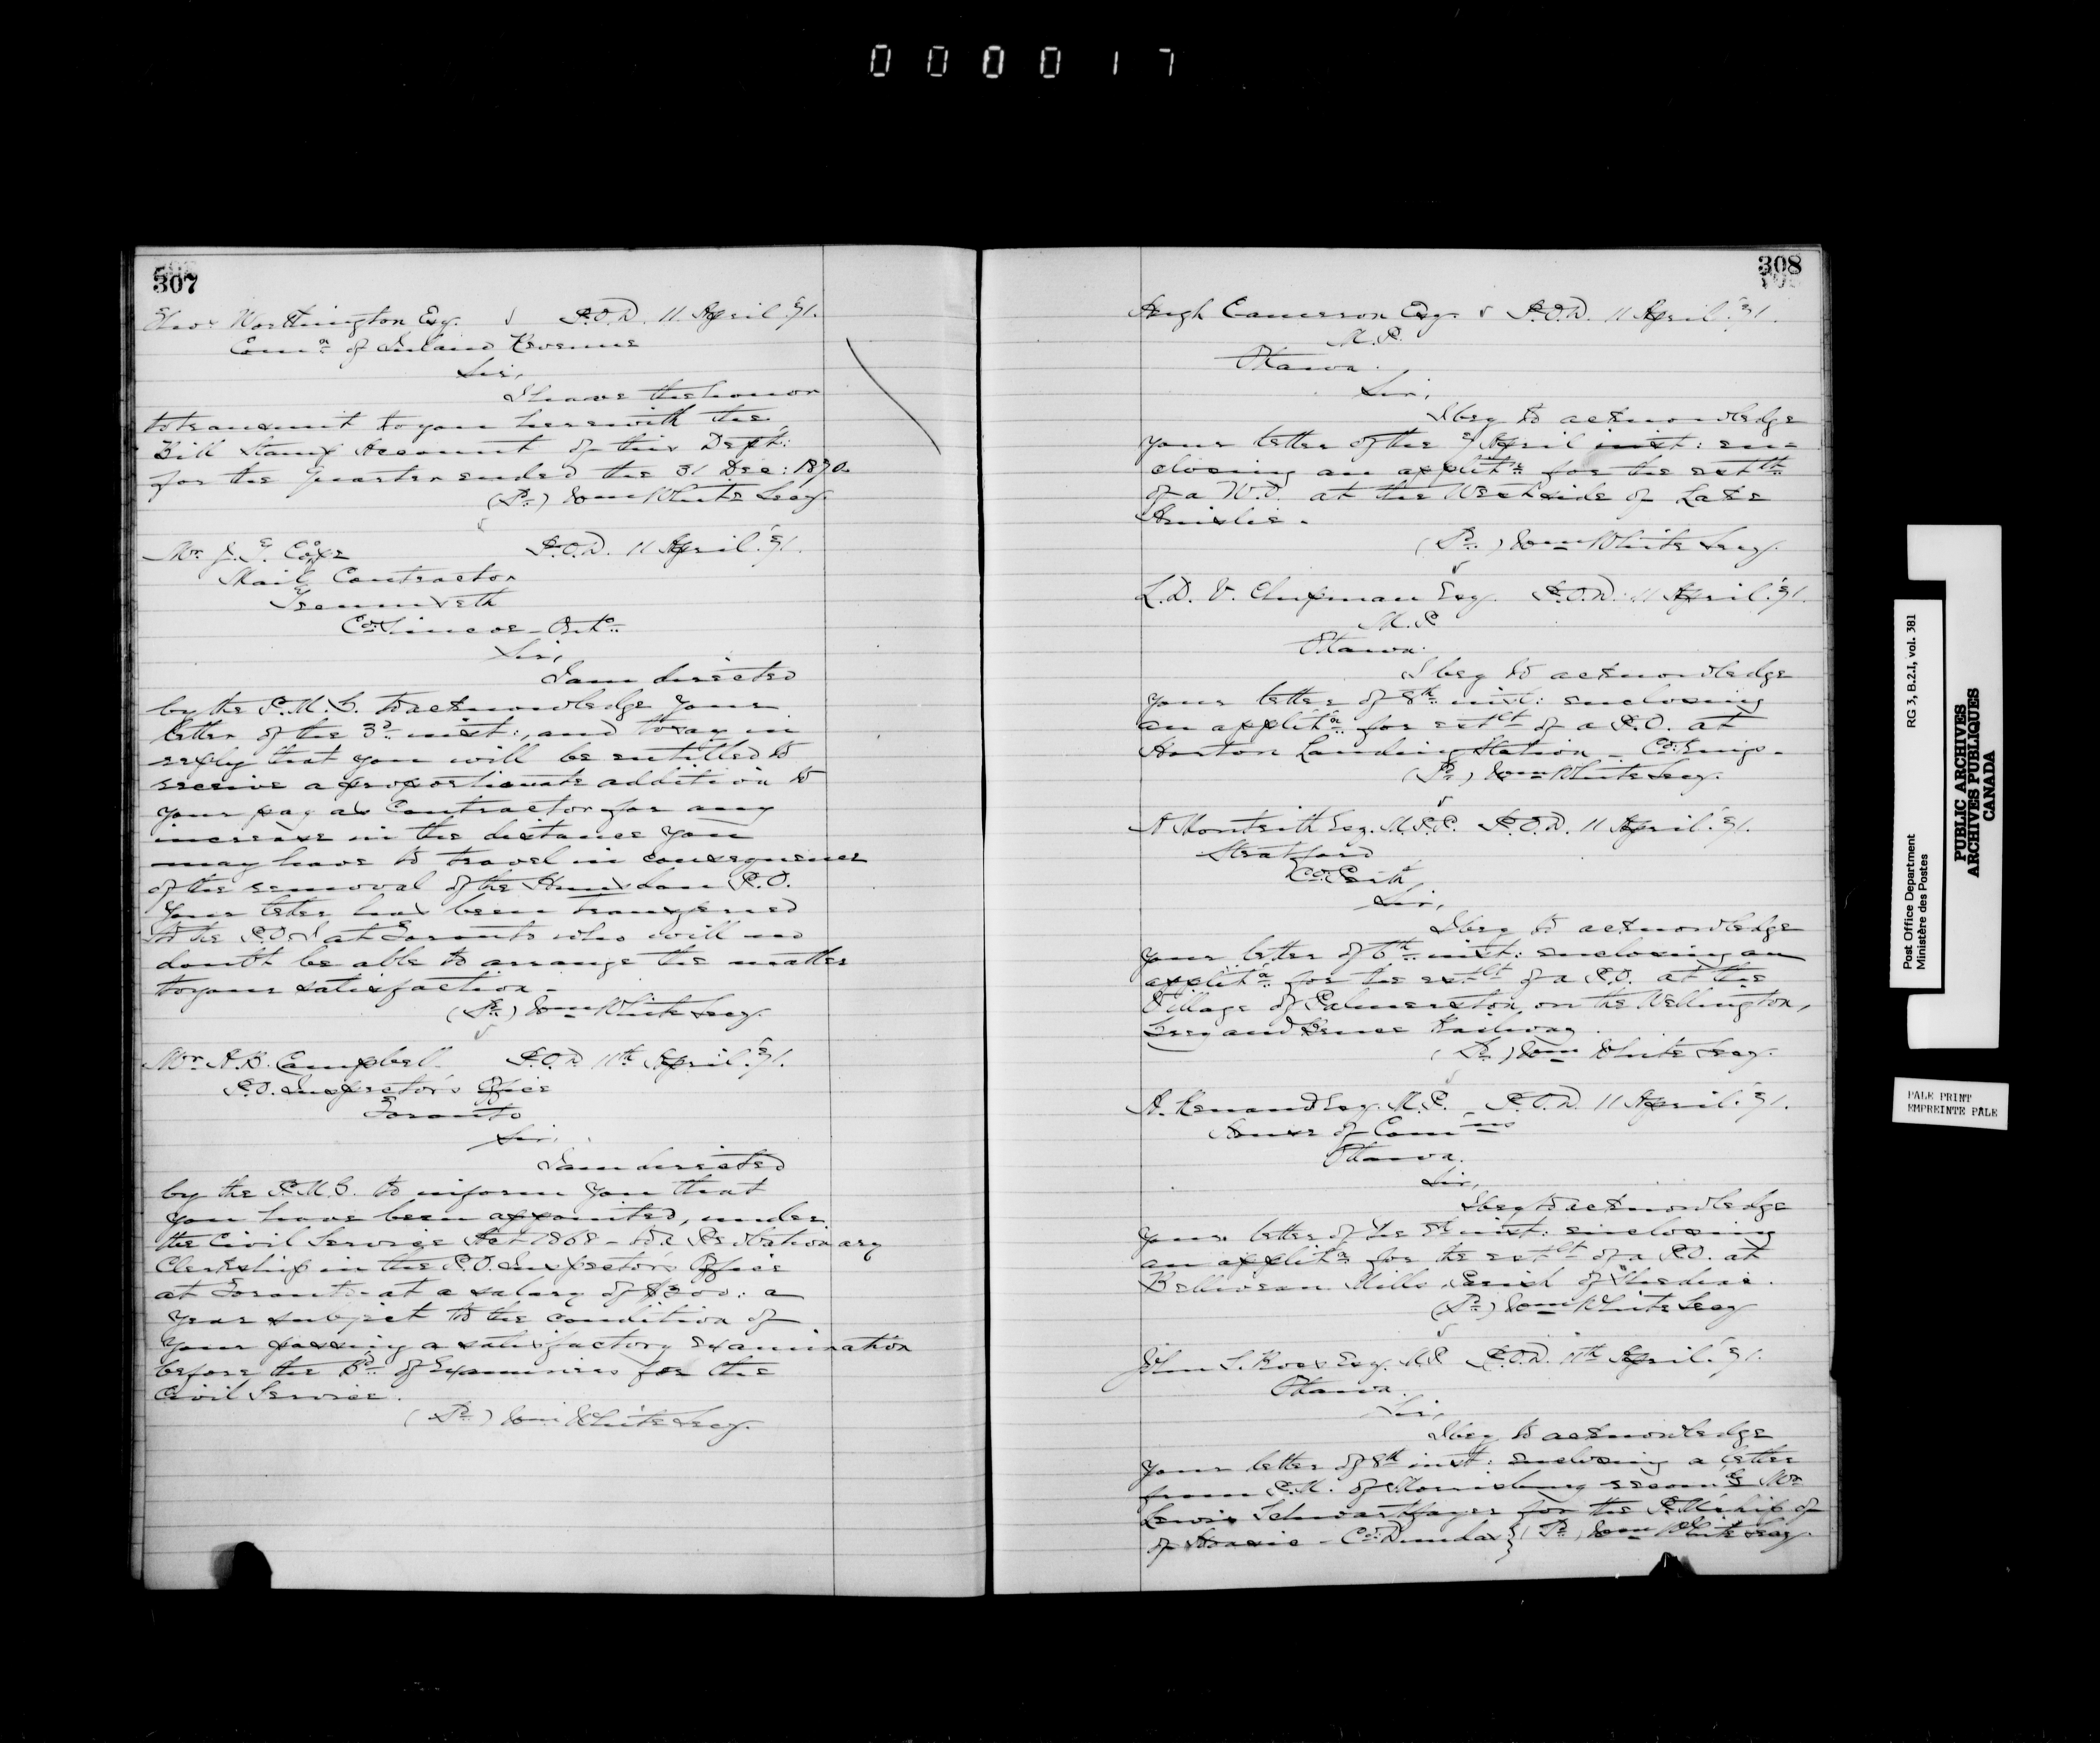 000017
307
Thos Worthington Esq. P.O.D. 11 April '71.
Comr of Inland Revenue
Sir,
I have the honor
to transmit to you herewith the
Bill Stamp Account of this Dept:
for the Quarter ended the 31 Dec: 1870.
(Sd) Wm White Secy.
Mr J. T. Cope P.O.D. 11 April '71.
Mail Contractor
Co: Simcoe - Onto:
Sir,
I am directed
by the P.M.G. to acknowledge your
letter of the 3d inst:, and to say in
reply that you will be entitled to
receive a proportionate addition to
your pay as Contractor for any
increase in the distance you
may have to travel in consequence
of the removal of the Hunsdon P.O.
Your letter has been transferred
to the P.O.I. at Toronto who will no
doubt be able to arrange the matter
to your satisfaction -
(Sd) Wm White Secy.
Mr A.B. Campbell P.O.D. 11th April '71.
P.O. Inspector's Office
Toronto
Sir,
I am directed
by the P.M.G. to inform you that
you have been appointed, under
the Civil Service Act 1868 - to a Probationary
Clerkship in the P.O. Inspector's Office
at Toronto - at a salary of $300: a
year subject to the condition of
your passing a satisfactory examination
before the Bd of Examiners for the
Civil Service.
(Sd) Wm White Secy.
308
Hugh Cameron Esq. P.O.D. 11 April '71.
M.P.
Ottawa.
Sir,
I beg to acknowledge
your letter of the 7 April inst: en=
closing an applitn for the estlt
of a W.O. at the West side of Lake
Ainslie.
(Sd) Wm White Secy.
L.D.V. Chipman Esq. P.O.D. 11 April '71.
M.P.
Ottawa.
I beg to acknowledge
your letter of 8th inst: enclosing
an applitn for estlt of a P.O. at
Horton Landing Station - Co: Kings -
(Sd) Wm White Secy.
A Monteith Esq. M.P.P. P.O.D. 11 April '71.
Stratford
Co. Perth
Sir,
I beg to acknowledge
your letter of 6th inst: enclosing an
applitn for the estlt of a P.O. at the
Village of Palmerston, on the Wellington,
Grey and Bruce Railway.
(Sd) Wm White Secy.
A. Renaud Esq. M.P. P.O.D. 11 April '71.
House of Comms
Ottawa.
Sir,
I beg to acknowledge
your letter of the 8th inst: enclosing
an applitn for the estlt of a P.O. at
Belliveau Mills, Parish of Shediac.
(Sd) Wm White Secy
John S. Ross Esq. M.P. P.O.D. 11th April '71.
Ottawa.
Sir,
I beg to acknowledge
your letter of 8th inst: enclosing a letter
from P.M. of Morrisburg recomdg Mr
Lewis for the P.M.ship of
of Hoasic - Co: Dundas } (Sd) Wm White Secy
Post Office Department RG 3, B.2.I, vol. 381
Ministère des Postes
PUBLIC ARCHIVES
ARCHIVES PUBLIQUES
CANADA
PALE PRINT
EMPREINTE PÂLE